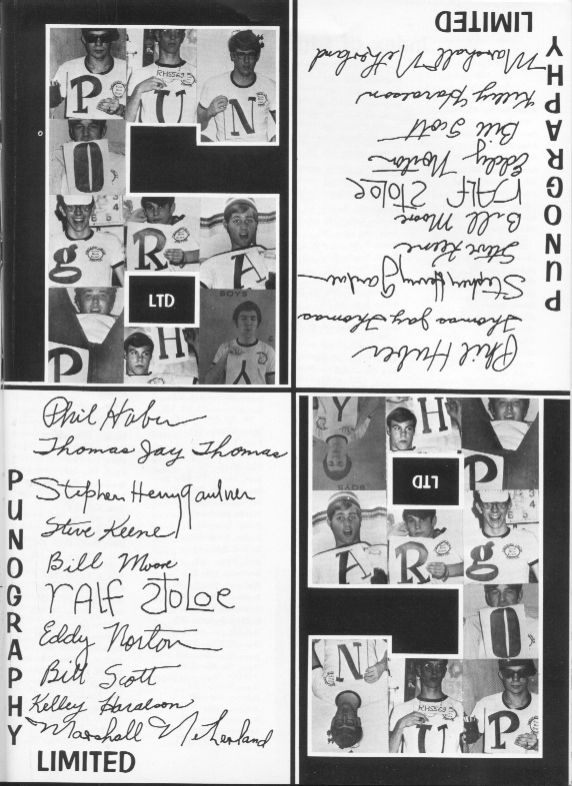 P U N
RHS569
O
g R A
LTD
BOYS
P H Y
PUNOGRAPHY
LIMITED
Phil Huber
Thomas Jay Thomas
Stephen Henry
Steve Keene
Bill Moore
rALf StoLoe
Eddy Norton
Bill Scott
Kelley Haralson
Marshall Netherland
Phil Huber
Thomas Jay Thomas
Stephen Henry
Steve Keene
Bill Moore
rALf StoLoe
Eddy Norton
Bill Scott
Kelley Haralson
Marshall Netherland
PUNOGRAPHY
LIMITED
P U N
RHS569
O
g R A
LTD
BOYS
P H Y